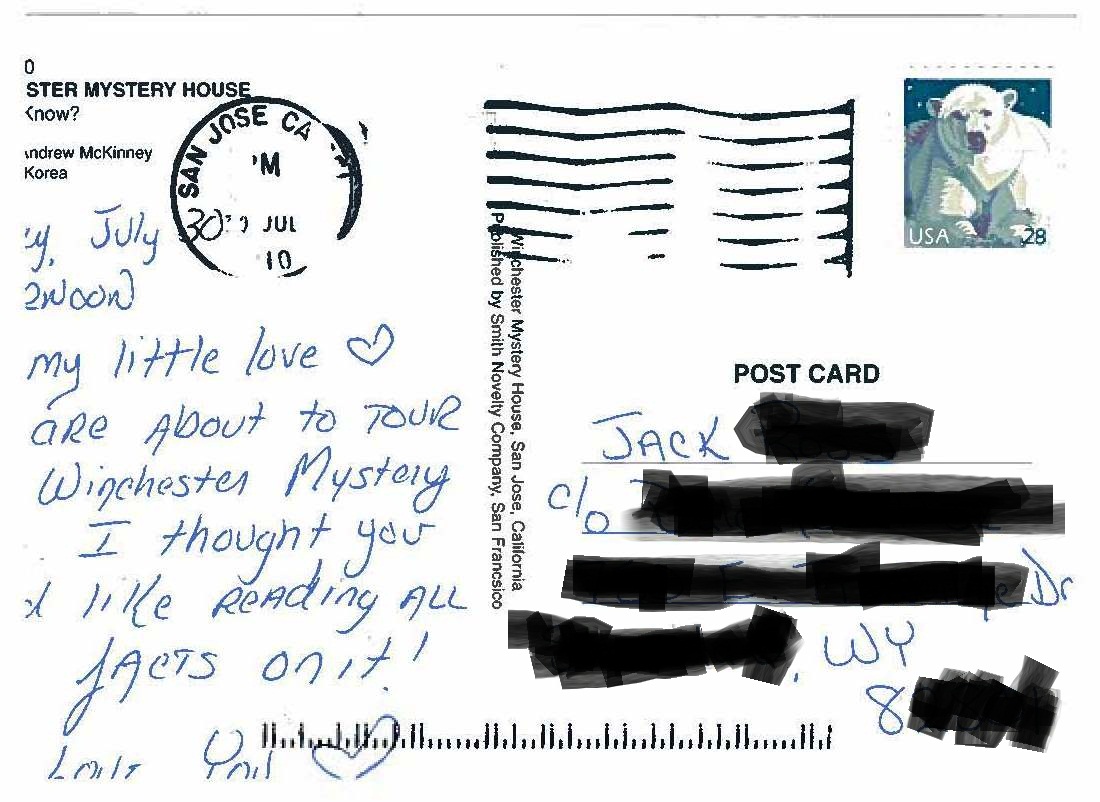 0
STER MYSTERY HOUSE
Know?
ndrew McKinney
Korea
SAN JOSE CA
'M
30 JUL
10
y, July 30
ENOON
my little love ♡
are About to TOUR
Winchester Mystery
I thought you
d like reading ALL
facts on it!
Love You ♡
Winchester Mystery House, San Jose, California
Published by Smith Novelty Company, San Francsico
USA 28
POST CARD
JACK
c/o
Dr
, WY
8